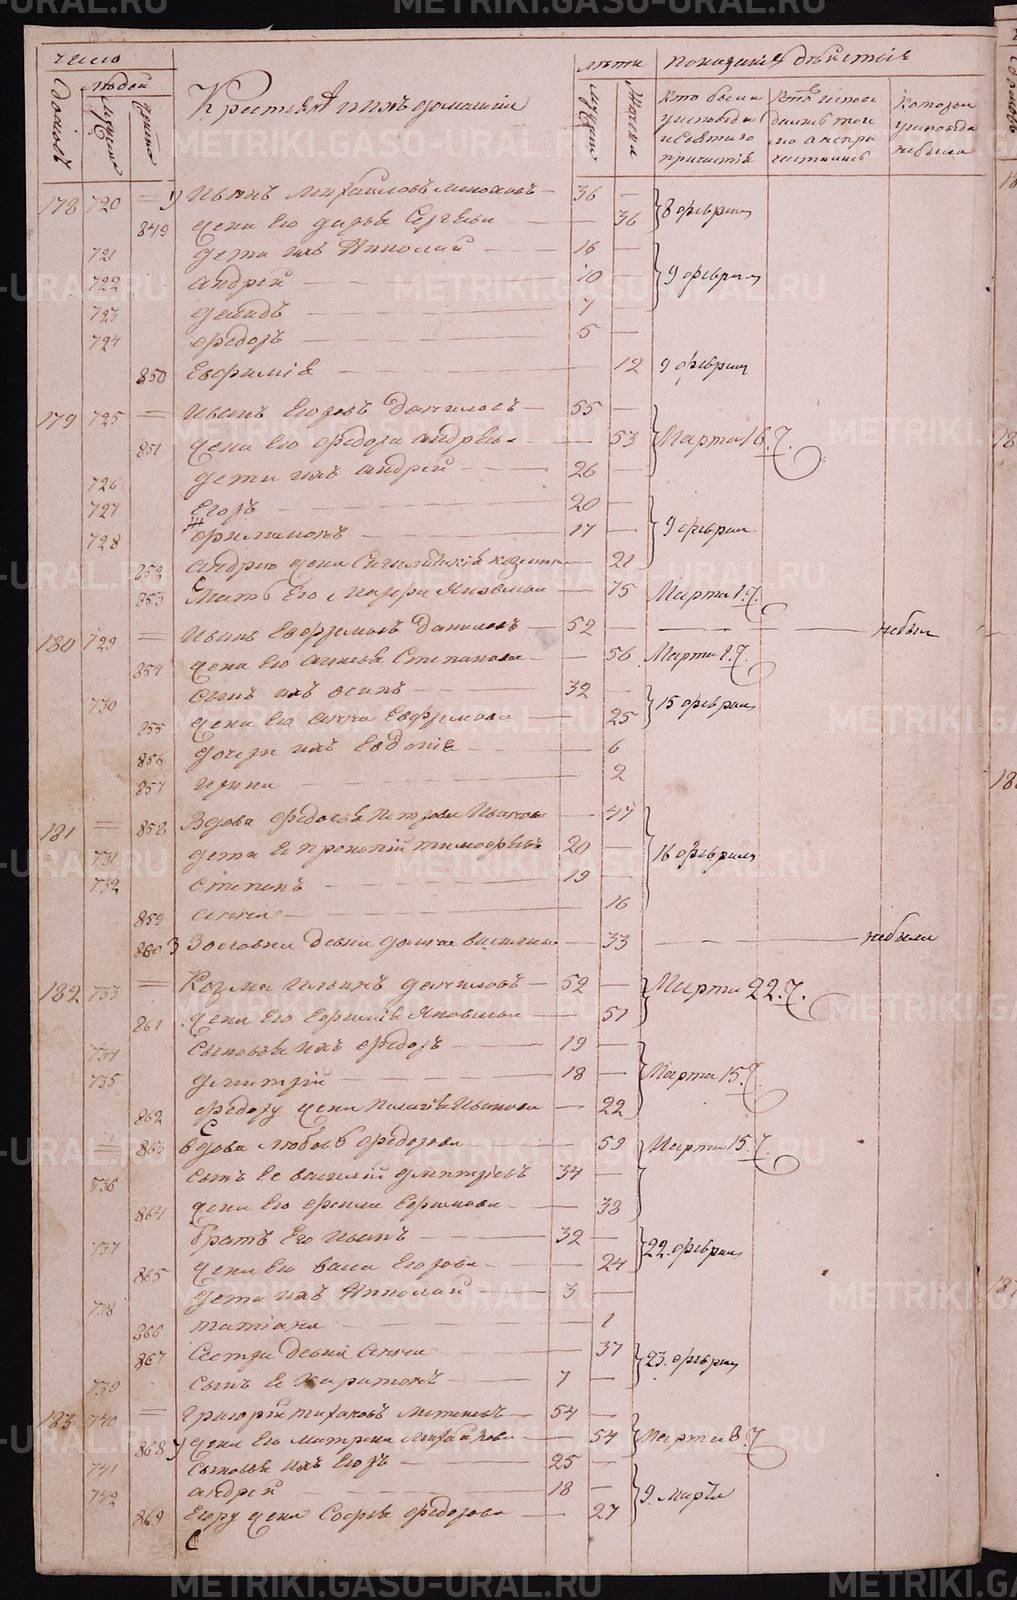 число
людей
домовъ
мужеска
женска
Крестьяня и ихъ домашнии
лѣта
мужеска
женска
показание дѣйствія
Кто были у исповѣди и святаго причастія
Кто исповѣдались токмо а не причастились
Которыи у исповѣди не были
178 720 = Иванъ Михайловъ 36 —
849 жена его Дарья Сергѣева — 36 8 февраля
721 дети ихъ Николай 16 —
722 андрей 10 9 февраля
723 давидъ 7 —
724 федоръ 5 —
850 Евфимія 12 9 февраля
179 725 = Иванъ Егоровъ Даниловъ 55 —
851 жена его федора андрѣева — 53 Марта 16.
726 дети ихъ андрей 26
727 Егоръ 20 —
728 филимонъ 17 — 9 февраля
852 андрею жена — 21
853 Мать Его Марфа Яковлева — 75 Марта 1.
180 729 = Иванъ Ефремовъ Даниловъ 52 — не былъ
854 жена его Степанова — 56 Марта 1.
730 сынъ ихъ осипъ 32 —
855 жена его анна Евфимова — 25 15 февраля
856 дочери ихъ Евдокія 6
857 ирина 2
181 = 858 Вдова федосья Петрова Иванова — 47
731 дети Ея Прокопій тимофѣевъ 20 — 16 февраля
732 степанъ 19
859 анна 16
860 Золовка девка Васильева — 33 не была
182 733 = Козма Ильинъ даниловъ 52 — Марта 22.
861 жена Его Ефимія Яковлева — 51
734 сыновья ихъ федоръ 19 —
735 димитрій 18 — Марта 15.
862 федору жена Пелагѣя Иванова — 22
= 863 вдова любовь федорова 59 Марта 15.
736 сынъ Ее василій дмитріевъ 34 —
864 жена Его Ефимова 38
737 братъ Его Иванъ 32 — 22. февраля
865 жена Его Васа Егорова — 24
738 дети ихъ Николай 3 —
866 татіана 1
867 сестра девка Анна 37 23. февраля
739 сынъ Ее Харитонъ 7 —
183 740 = григорій 54 —
868 жена Его матрена Михайлова — 54 Марта 8.
741 сыновья ихъ Егоръ 25 —
742 андрей 18 — 9. Марта
869 Егору жена Софья федорова — 27
METRIKI.GASO-URAL.RU